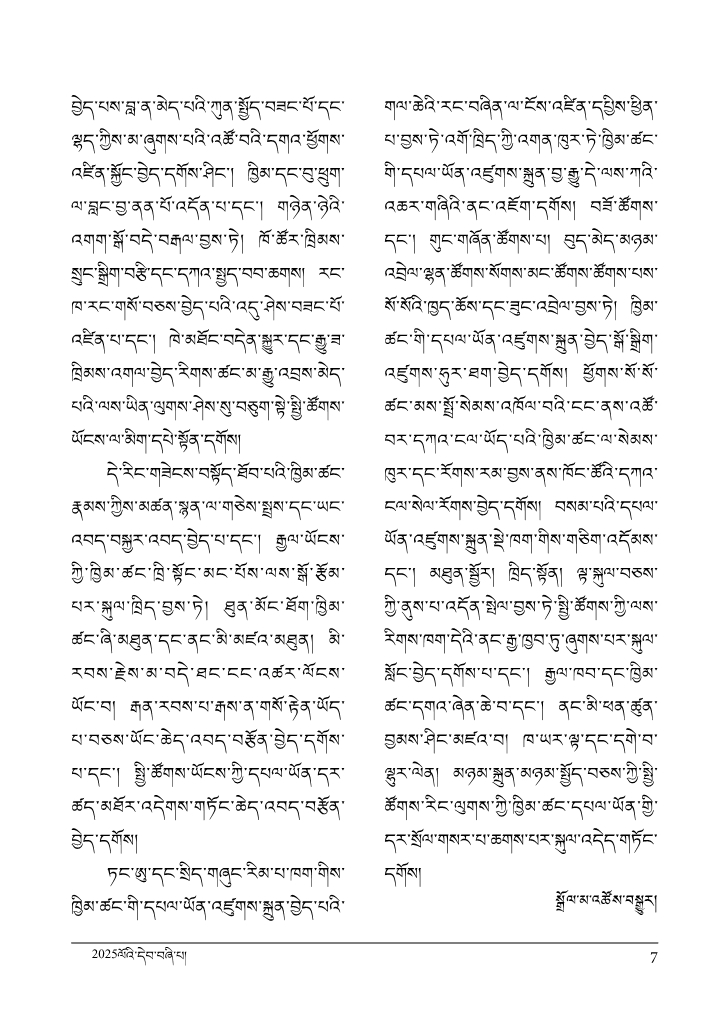 བྱེད་པས་བླ་ན་མེད་པའི་ཀུན་སྤྱོད་བཟང་པོ་དང་
ལྷད་ཀྱིས་མ་ཞུགས་པའི་འཚོ་བའི་དགའ་ཕྱོགས་
འཛིན་སྐྱོང་བྱེད་དགོས་ཤིང་། ཁྱིམ་དང་བུ་ཕྲུག་
ལ་བླང་བྱ་ནན་པོ་འདོན་པ་དང་། གཉེན་ཉེའི་
འགག་སྒོ་བདེ་བརྒལ་བྱས་ཏེ། ཁོ་ཚོར་ཁྲིམས་
སྲུང་སྒྲིག་བརྩི་དང་དཀའ་སྤྱད་བབ་ཆགས། རང་
ཁ་རང་གསོ་བཅས་བྱེད་པའི་འདུ་ཤེས་བཟང་པོ་
འཛིན་པ་དང་། ཁེ་མཐོང་བདེན་སྐྱུར་དང་རྒྱུ་ཟ་
ཁྲིམས་འགལ་བྱེད་རིགས་ཚང་མ་རྒྱུ་འབྲས་མེད་
པའི་ལས་ཡིན་ལུགས་ཤེས་སུ་བཅུག་སྟེ་སྤྱི་ཚོགས་
ཡོངས་ལ་མིག་དཔེ་སྟོན་དགོས།
དེ་རིང་གཟེངས་བསྟོད་ཐོབ་པའི་ཁྱིམ་ཚང་
རྣམས་ཀྱིས་མཚན་སྙན་ལ་གཅེས་སྤྲས་དང་ཡང་
འབད་བསྐྱར་འབད་བྱེད་པ་དང་། རྒྱལ་ཡོངས་
ཀྱི་ཁྱིམ་ཚང་ཁྲི་སྟོང་མང་པོས་ལས་སྒོ་རྩོམ་
པར་སྐུལ་ཁྲིད་བྱས་ཏེ། ཐུན་མོང་ཐོག་ཁྱིམ་
ཚང་ཞི་མཐུན་དང་ནང་མི་མཛའ་མཐུན། མི་
རབས་རྗེས་མ་བདེ་ཐང་ངང་འཚར་ལོངས་
ཡོང་བ། རྒན་རབས་པ་རྒས་ན་གསོ་རྟེན་ཡོད་
པ་བཅས་ཡོང་ཆེད་འབད་བརྩོན་བྱེད་དགོས་
པ་དང་། སྤྱི་ཚོགས་ཡོངས་ཀྱི་དཔལ་ཡོན་དར་
ཚད་མཐོར་འདེགས་གཏོང་ཆེད་འབད་བརྩོན་
བྱེད་དགོས།
ཏང་ཨུ་དང་སྲིད་གཞུང་རིམ་པ་ཁག་གིས་
ཁྱིམ་ཚང་གི་དཔལ་ཡོན་འཛུགས་སྐྲུན་བྱེད་པའི་
གལ་ཆེའི་རང་བཞིན་ལ་ངོས་འཛིན་དཔྱིས་ཕྱིན་
པ་བྱས་ཏེ་འགོ་ཁྲིད་ཀྱི་འགན་ཁུར་ཏེ་ཁྱིམ་ཚང་
གི་དཔལ་ཡོན་འཛུགས་སྐྲུན་བྱ་རྒྱུ་དེ་ལས་ཀའི་
འཆར་གཞིའི་ནང་འཇོག་དགོས། བཟོ་ཚོགས་
དང་། གུང་གཞོན་ཚོགས་པ། བུད་མེད་མཉམ་
འབྲེལ་ལྷན་ཚོགས་སོགས་མང་ཚོགས་ཚོགས་པས་
སོ་སོའི་ཁྱད་ཆོས་དང་ཟུང་འབྲེལ་བྱས་ཏེ། ཁྱིམ་
ཚང་གི་དཔལ་ཡོན་འཛུགས་སྐྲུན་བྱེད་སྒོ་སྒྲིག་
འཛུགས་ཧུར་ཐག་བྱེད་དགོས། ཕྱོགས་སོ་སོ་
ཚང་མས་སྤྲོ་སེམས་འཁོལ་བའི་ངང་ནས་འཚོ་
བར་དཀའ་ངལ་ཡོད་པའི་ཁྱིམ་ཚང་ལ་སེམས་
ཁུར་དང་རོགས་རམ་བྱས་ནས་ཁོང་ཚོའི་དཀའ་
ངལ་སེལ་རོགས་བྱེད་དགོས། བསམ་པའི་དཔལ་
ཡོན་འཛུགས་སྐྲུན་སྡེ་ཁག་གིས་གཅིག་འདོམས་
དང་། མཐུན་སྦྱོར། ཁྲིད་སྟོན། ལྟ་སྐུལ་བཅས་
ཀྱི་ནུས་པ་འདོན་སྤེལ་བྱས་ཏེ་སྤྱི་ཚོགས་ཀྱི་ལས་
རིགས་ཁག་དེའི་ནང་རྒྱ་ཁྱབ་ཏུ་ཞུགས་པར་སྐུལ་
སློང་བྱེད་དགོས་པ་དང་། རྒྱལ་ཁབ་དང་ཁྱིམ་
ཚང་དགའ་ཞེན་ཆེ་བ་དང་། ནང་མི་ཕན་ཚུན་
བྱམས་ཤིང་མཛའ་བ། ཁ་ཡར་ལྟ་དང་དགེ་བ་
ལྷུར་ལེན། མཉམ་སྐྲུན་མཉམ་སྤྱོད་བཅས་ཀྱི་སྤྱི་
ཚོགས་རིང་ལུགས་ཀྱི་ཁྱིམ་ཚང་དཔལ་ཡོན་གྱི་
དར་སྲོལ་གསར་པ་ཆགས་པར་སྐུལ་འདེད་གཏོང་
དགོས།
སྒྲོལ་མ་འཚོས་བསྒྱུར།
2025ལོའི་དེབ་བཞི་པ།
7